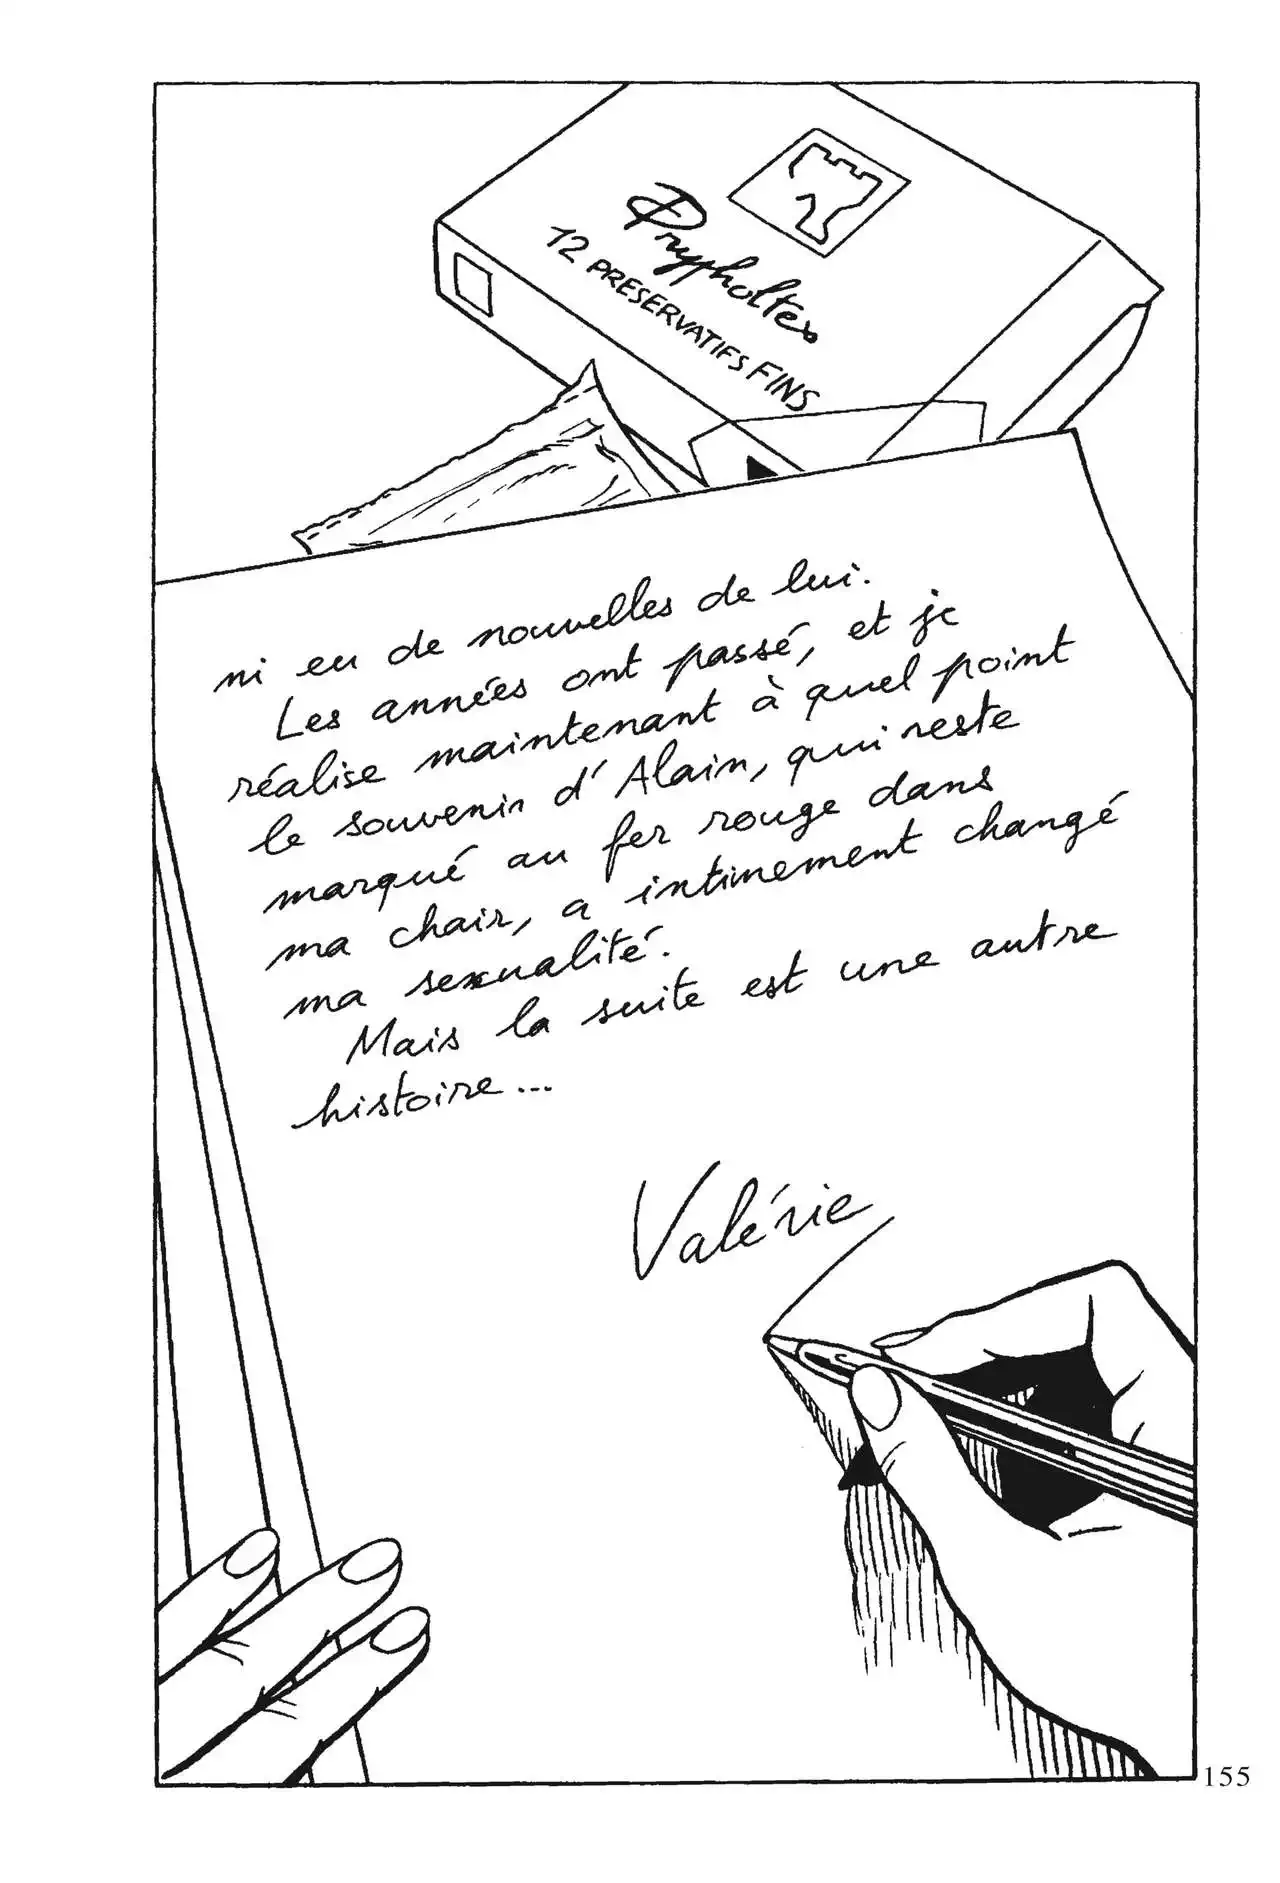 Prypholtex
12 PRESERVATIFS FINS
ni eu de nouvelles de lui.
Les années ont passé, et je
réalise maintenant à quel point
le souvenir d'Alain, qui reste
marqué au fer rouge dans
ma chair, a intimement changé
ma sexualité.
Mais la suite est une autre
histoire...
Valérie
155